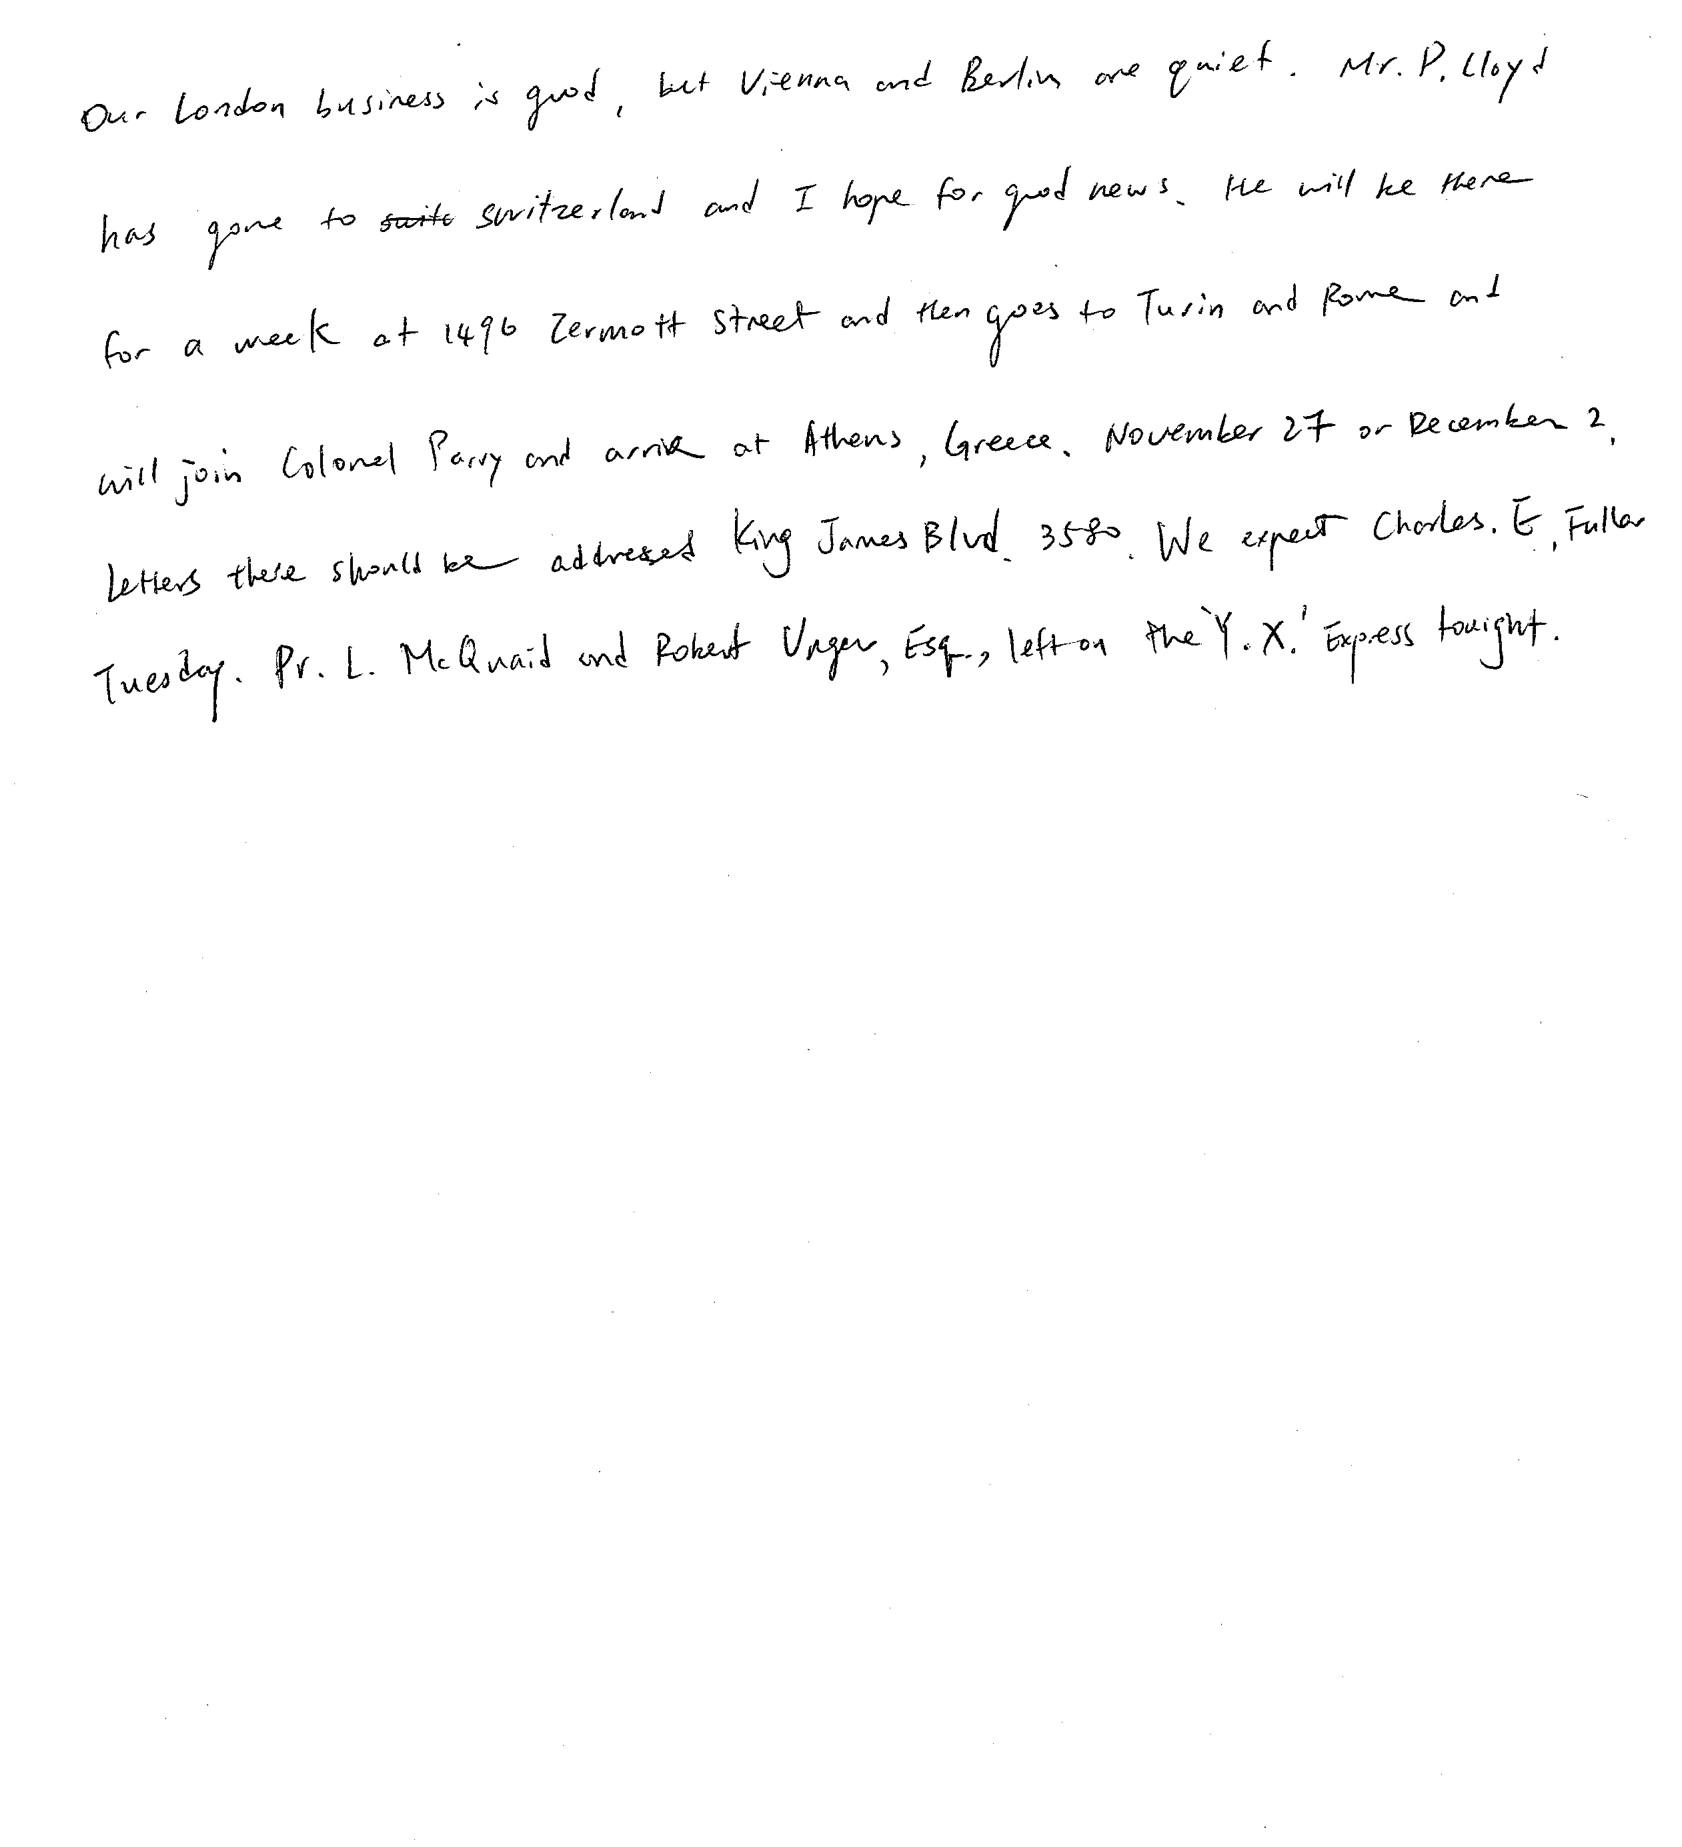 Our London business is good, but Vienna and Berlin are quiet. Mr. P. Lloyd
has gone to suite Switzerland and I hope for good news. He will be there
for a week at 1496 Zermott Street and then goes to Turin and Rome and
will join Colonel Parry and arrive at Athens, Greece. November 27 or December 2.
Letters there should be addressed King James Blvd. 3580. We expect Charles. E. Fuller
Tuesday. Pr. L. McQuaid and Robert Unger, Esq., left on the 'Y. X.' Express tonight.